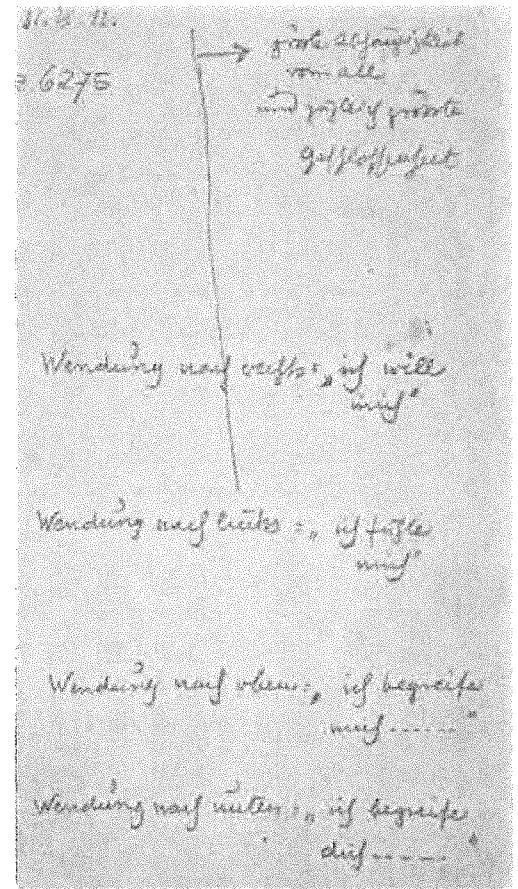 6275
größte Abhängigkeit
vom all
und zugleich grösste
Geschlossenheit
Wendung nach rechts: „ich will
mich“
Wendung nach links: „ich fühle
mich“
Wendung nach oben: „ich begreife
mich ......“
Wendung nach unten: „ich begreife
dich ......“